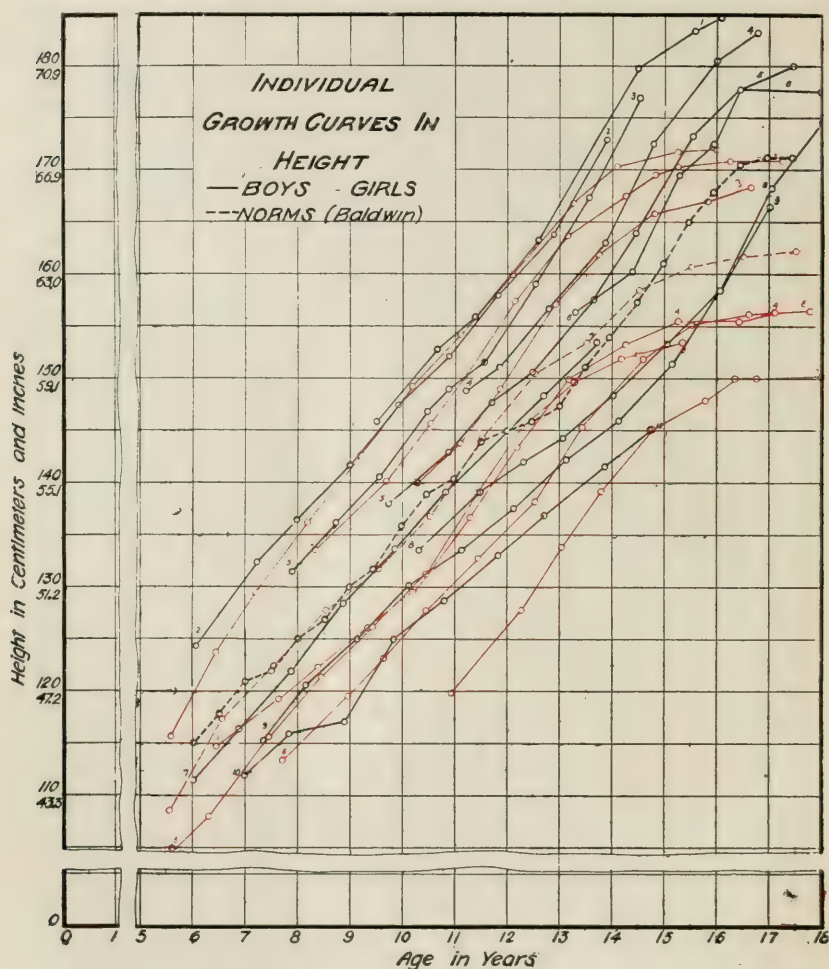 INDIVIDUAL
GROWTH CURVES IN
HEIGHT
— BOYS - GIRLS
--- NORMS (Baldwin)
Height in Centimeters and Inches
180
70.9
170
66.9
160
63.0
150
59.1
140
55.1
130
51.2
120
47.2
110
43.3
0
0 1 5 6 7 8 9 10 11 12 13 14 15 16 17 18
Age in Years